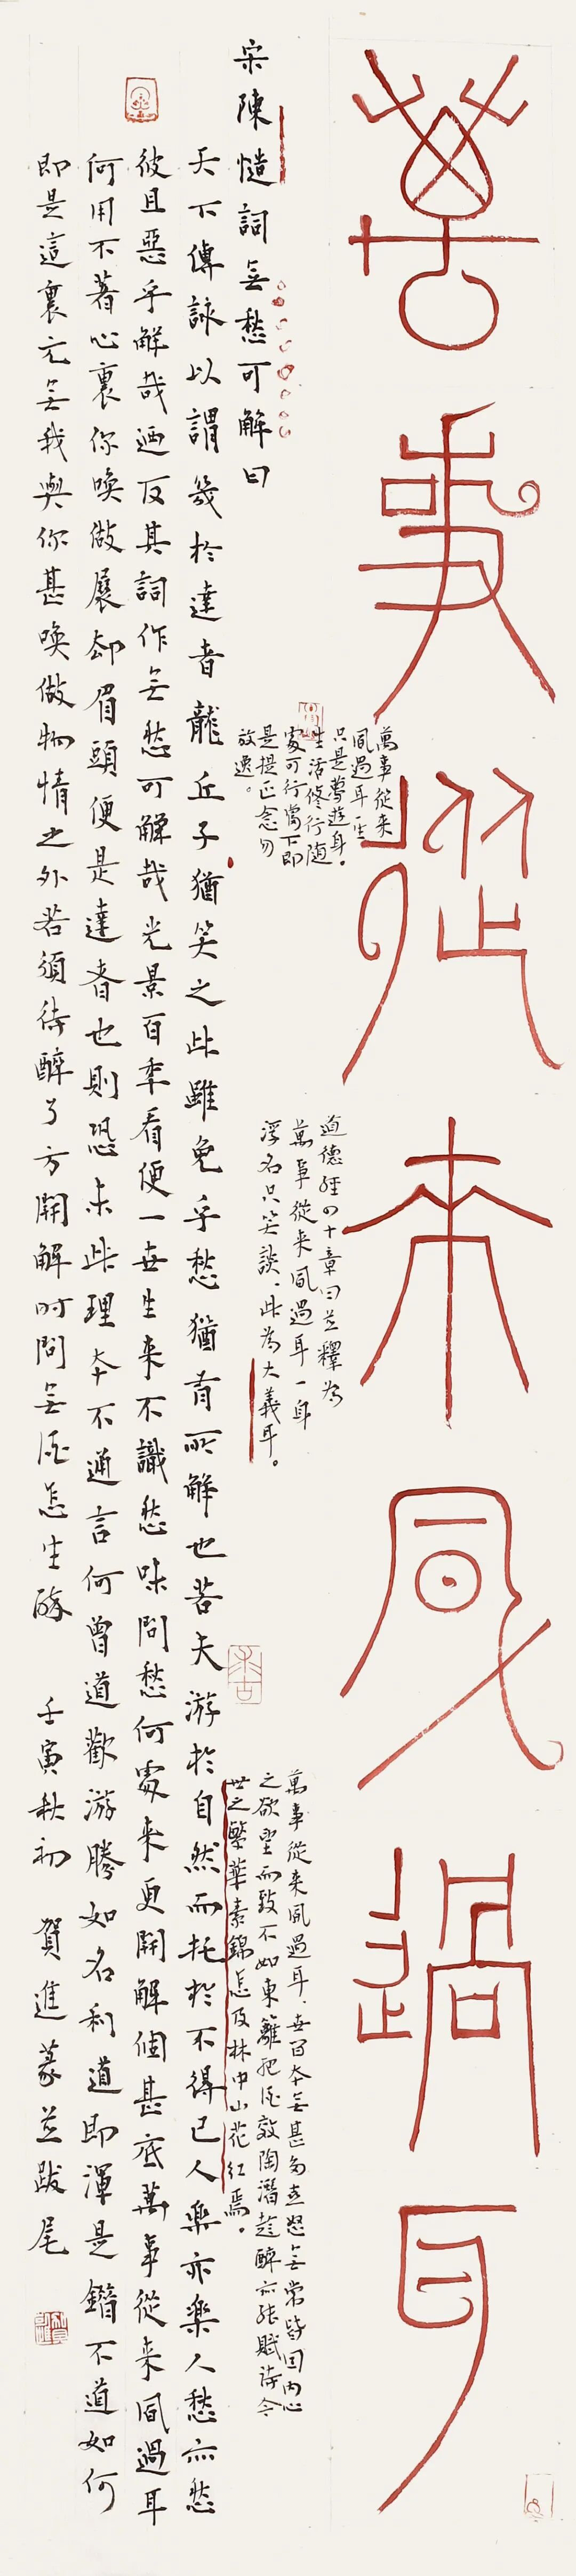 萬事從来風過耳
萬事從来
風過耳一生
只是夢遊身。
生活修行随
處可行當下即
是提正念勿
放逸。
道德經四十章曰並釋為
萬事從来風過耳一身
浮名只笑談、此為大義耳。
萬事從来風過耳、世間本無甚多喜怒無常皆因内心
之欲望而致不如東籬把酒效陶潛趁醉亦能賦詩令
世之繁華素錦怎及林中山花红焉。
宋陳慥詞無愁可解曰
天下傳詠以謂幾於達者龍丘子猶笑之此雖免乎愁猶有所解也若夫游於自然而托於不得已人樂亦樂人愁亦愁
彼且惡乎解哉迺反其詞作無愁可解哉光景百年看便一世生来不識愁味問愁何處来更開解個甚底萬事從来風過耳
何用不著心裏你喚做展却眉頭便是達者也則恐未此理本不通言何曾道歡游勝如名利道即渾是錯不道如何
即是這裏元無我與你甚喚做物情之外若須待醉了方開解时問無酒怎生醉 壬寅秋初 賀進篆並跋尾